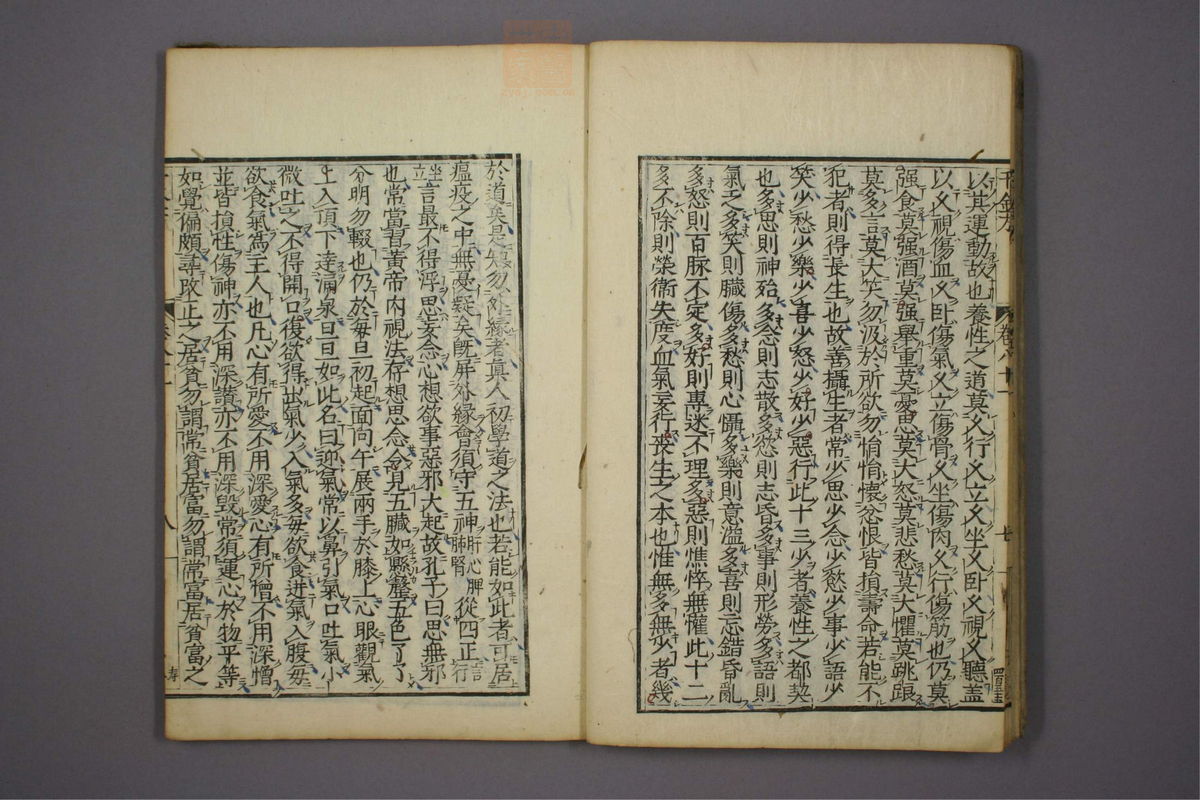 以其運動故也養性之道莫久行久立久坐久臥久視久聽蓋
以久視傷血久臥傷氣久立傷骨久坐傷肉久行傷筋也仍莫
强食莫强酒莫强舉重莫憂思莫大怒莫悲愁莫大懼莫跳踉
莫多言莫大笑勿汲汲於所欲勿悁悁懷忿恨皆損壽命若能不
犯者則得長生也故善攝生者常少思少念少慾少事少語少
笑少愁少樂少喜少怒少好少惡行此十三少者養性之都契
也多思則神殆多念則志散多慾則志昏多事則形勞多語則
氣乏多笑則臟傷多愁則心懾多樂則意溢多喜則忘錯昏亂
多怒則百脉不定多好則專迷不理多惡則憔悴無懽此十二
多不除則榮衛失度血氣妄行喪生之本也惟無多無少者幾
千金方
卷八十一
於道矣是知勿外緣者真人初學道之法也若能如此者可居
瘟疫之中無憂疑矣旣屏外緣會須守五神肝心脾肺腎從四正言行
坐立言最不得浮思妄念心想欲事惡邪大起故孔子曰思無邪
也常當習黃帝內視法存想思念令見五臟如懸罄五色了了
分明勿輟也仍於每旦初起面向午展兩手於膝上心眼觀氣
上入頂下達涌泉旦旦如此名曰迎氣常以鼻引氣口吐氣小
微吐之不得開口復欲得出氣少入氣多每欲食送氣入腹每
欲食氣爲主人也凡心有所愛不用深愛心有所憎不用深憎
並皆損性傷神亦不用深讚亦不用深毀常須運心於物平等
如覺偏頗尋改正之居貧勿謂常貧居富勿謂常富居貧富之